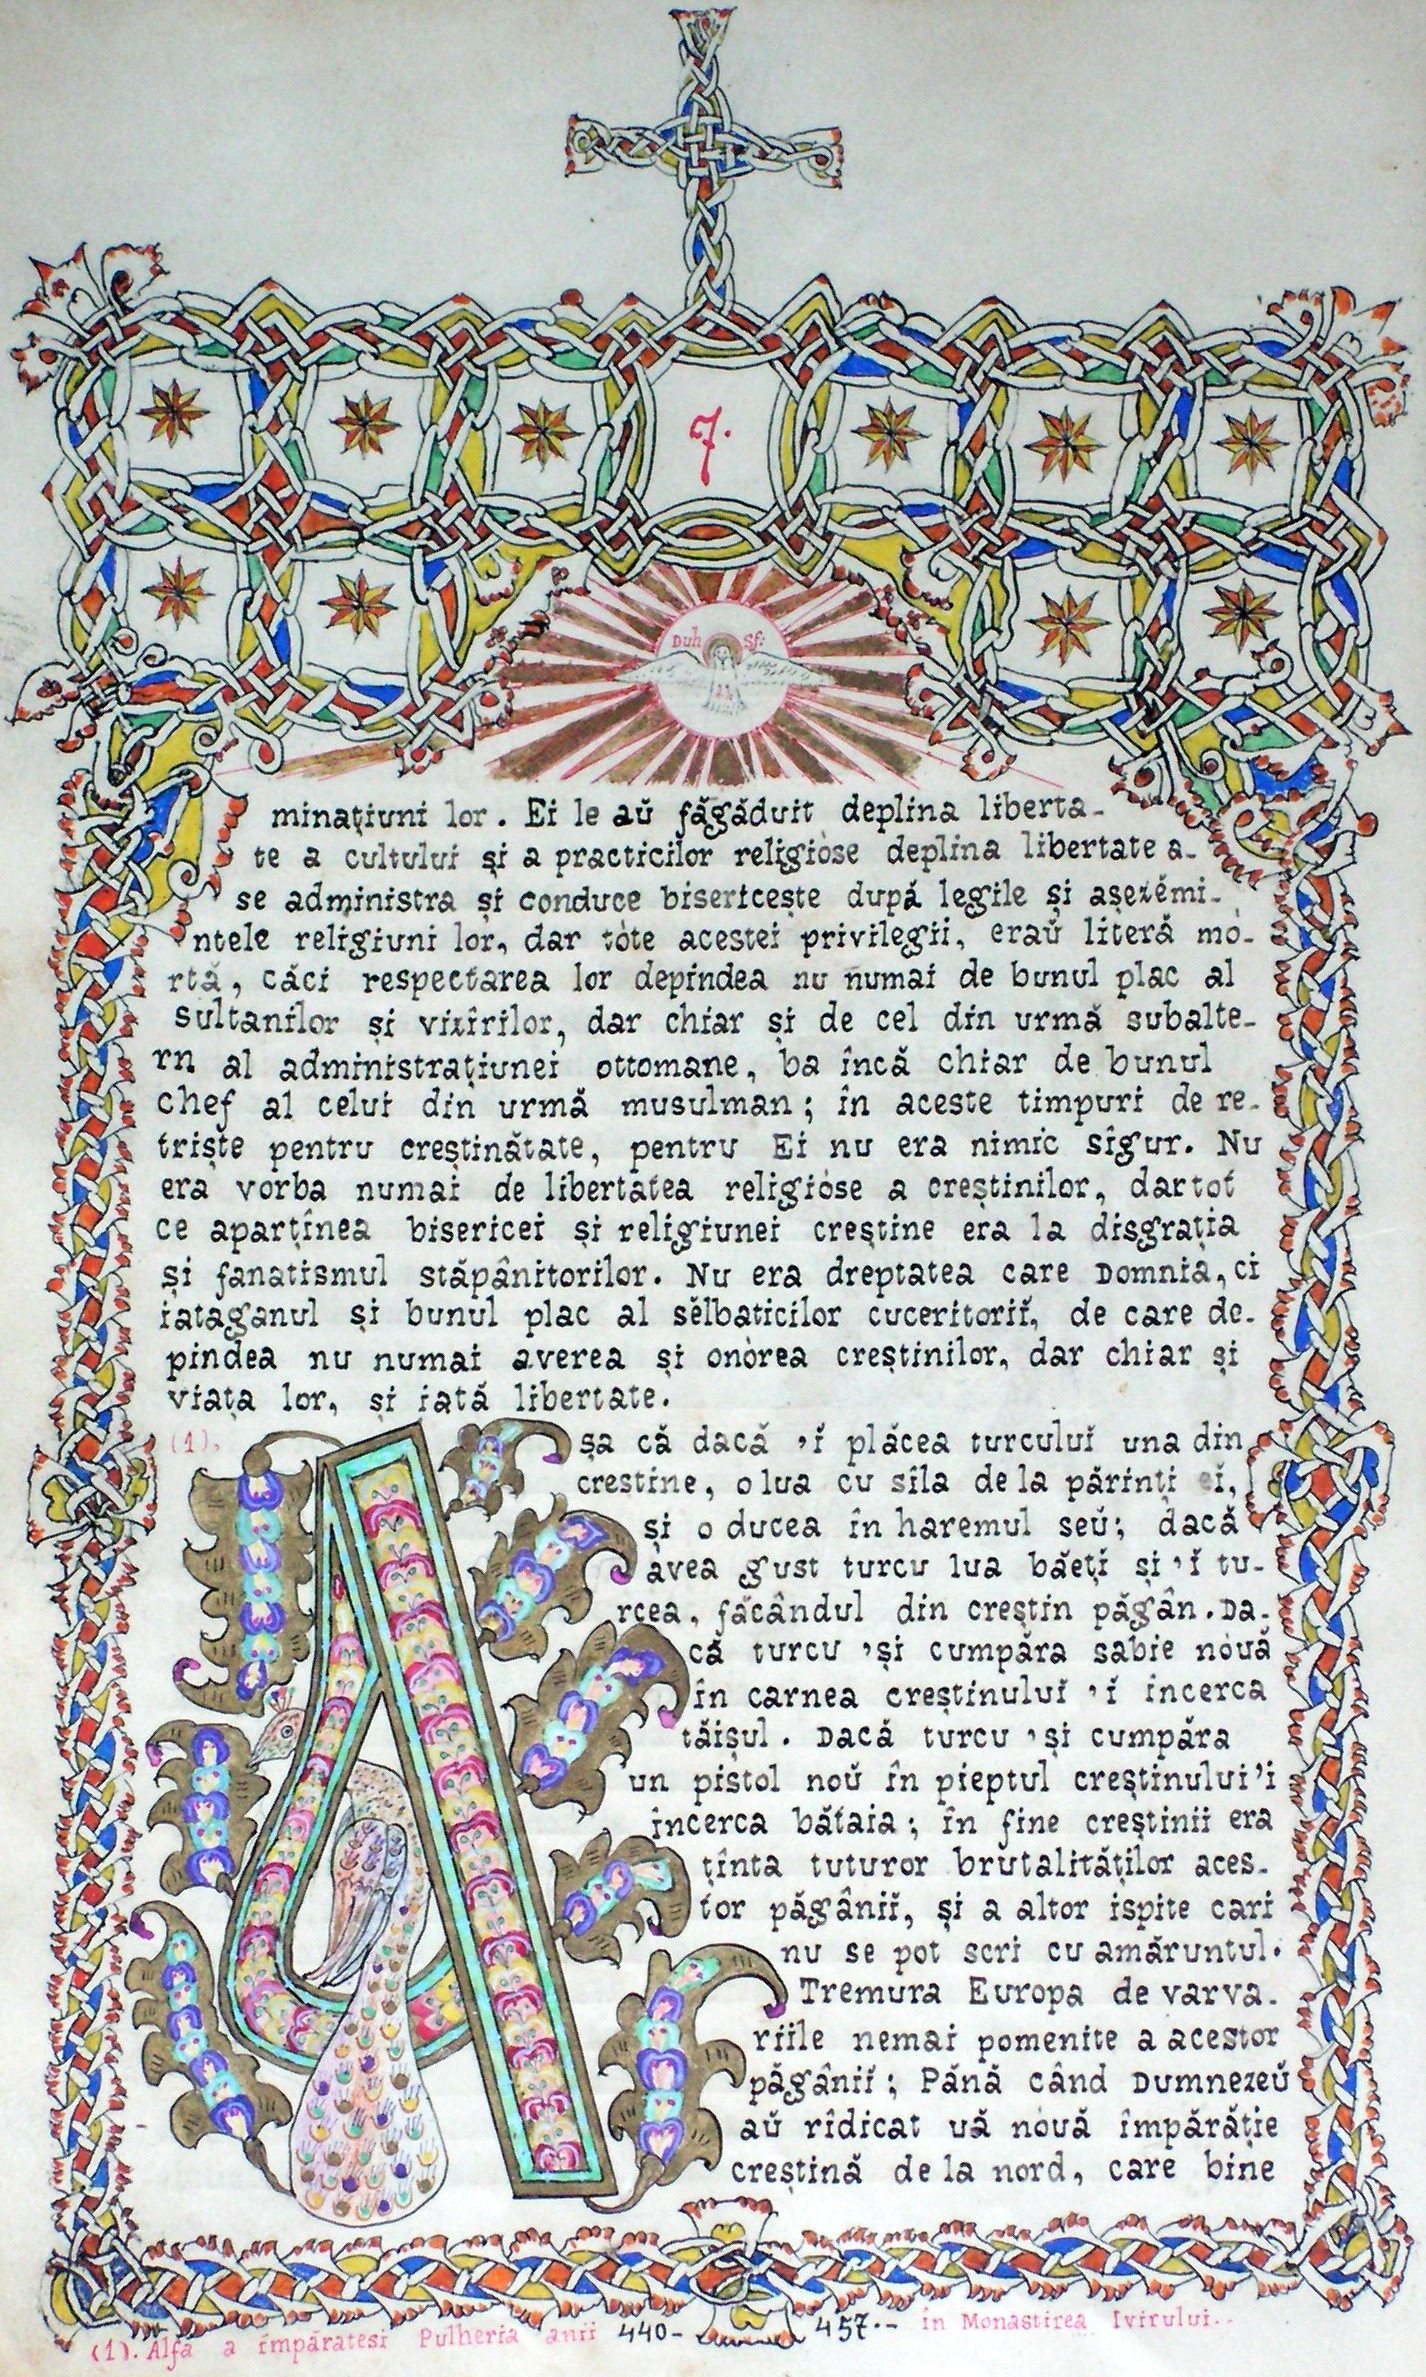 7.
Duh Sf:
minațiuni lor. Ei le aŭ făgăduit deplina liberta-
te a cultului și a practicilor religiòse deplina libertate a-
se administra și conduce bisericește după legile și așezĕmi-
ntele religiuni lor, dar tòte acestei privilegii, eraŭ literă mo-
rtă, căci respectarea lor depindea nu numai de bunul plac al
Sultanilor și vizîrilor, dar chiar și de cel din urmă subalte-
rn al administrațiunei ottomane, ba încă chiar de bunul
chef al celui din urmă musulman; în aceste timpuri de re-
triște pentru creștinătate, pentru Ei nu era nimic sîgur. Nu
era vorba numai de libertatea religiòse a creștinilor, dar tot
ce aparțînea bisericei și religiunei creștine era la disgrația
și fanatismul stăpânitorilor. Nu era dreptatea care Domnia, ci
iataganul și bunul plac al sĕlbaticilor cuceritoriĭ, de care de-
pindea nu numai averea și onòrea creștinilor, dar chiar și
viața lor, și iată libertate.
(1).
Așa că dacă 'ĭ plăcea turculuĭ una din
crestine, o lua cu sîla de la părinți ei,
și o ducea în haremul seŭ; dacă
avea gust turcu lua băețĭ și 'ĭ tu-
rcea, făcândul din creștin păgân. Da-
că turcu 'și cumpăra sabie nòuă
în carnea creștinuluĭ 'ĭ încerca
tăișul. Dacă turcu 'și cumpăra
un pistol noŭ în pieptul creștinului 'i
încerca bătaia; în fine creștinii era
țînta tuturor brutalităților aces-
tor păgâniĭ, și a altor ispite cari
nu se pot scri cu amăruntul.
Tremura Europa de varva-
riile nemai pomenite a acestor
păgâniĭ; Până când Dumnezeŭ
aŭ rîdicat uă nòuă împărăție
creștină de la nord, care bine
(1). Alfa a împăratesi Pulheria anii 440- 457.- în Monastirea Ivirului..